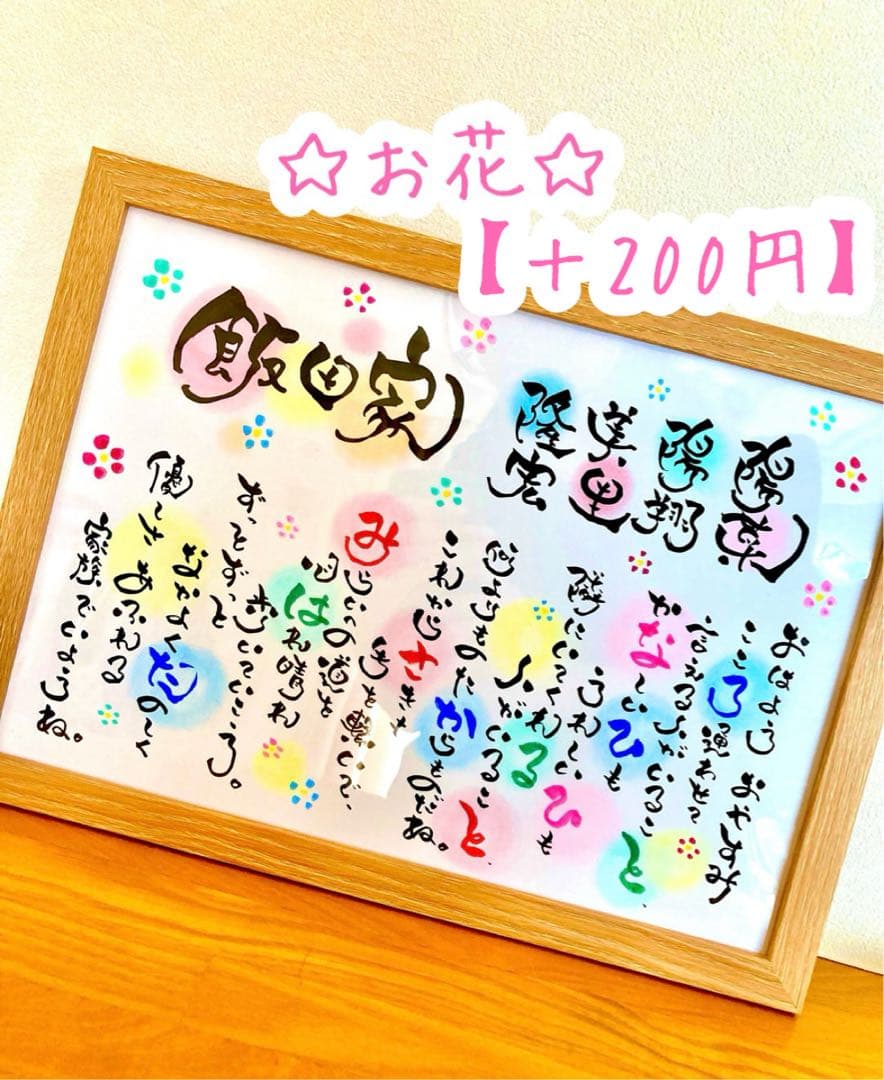 ☆お花☆
【+200円】
飯田家
陽菜
陽翔
美里
隆宏
おはよう おやすみ
こころ通わせて
言える人がいること、
かなしいひも
うれしいひも
隣にいてくれる
人がいること、
何よりもたからものだね。
これからさきも
手を繋いで、
みらいへの道を
心はれ晴れ
歩いていこう。
ずっとずっと
なかよくたのしく
優しさあふれる
家族でいようね。